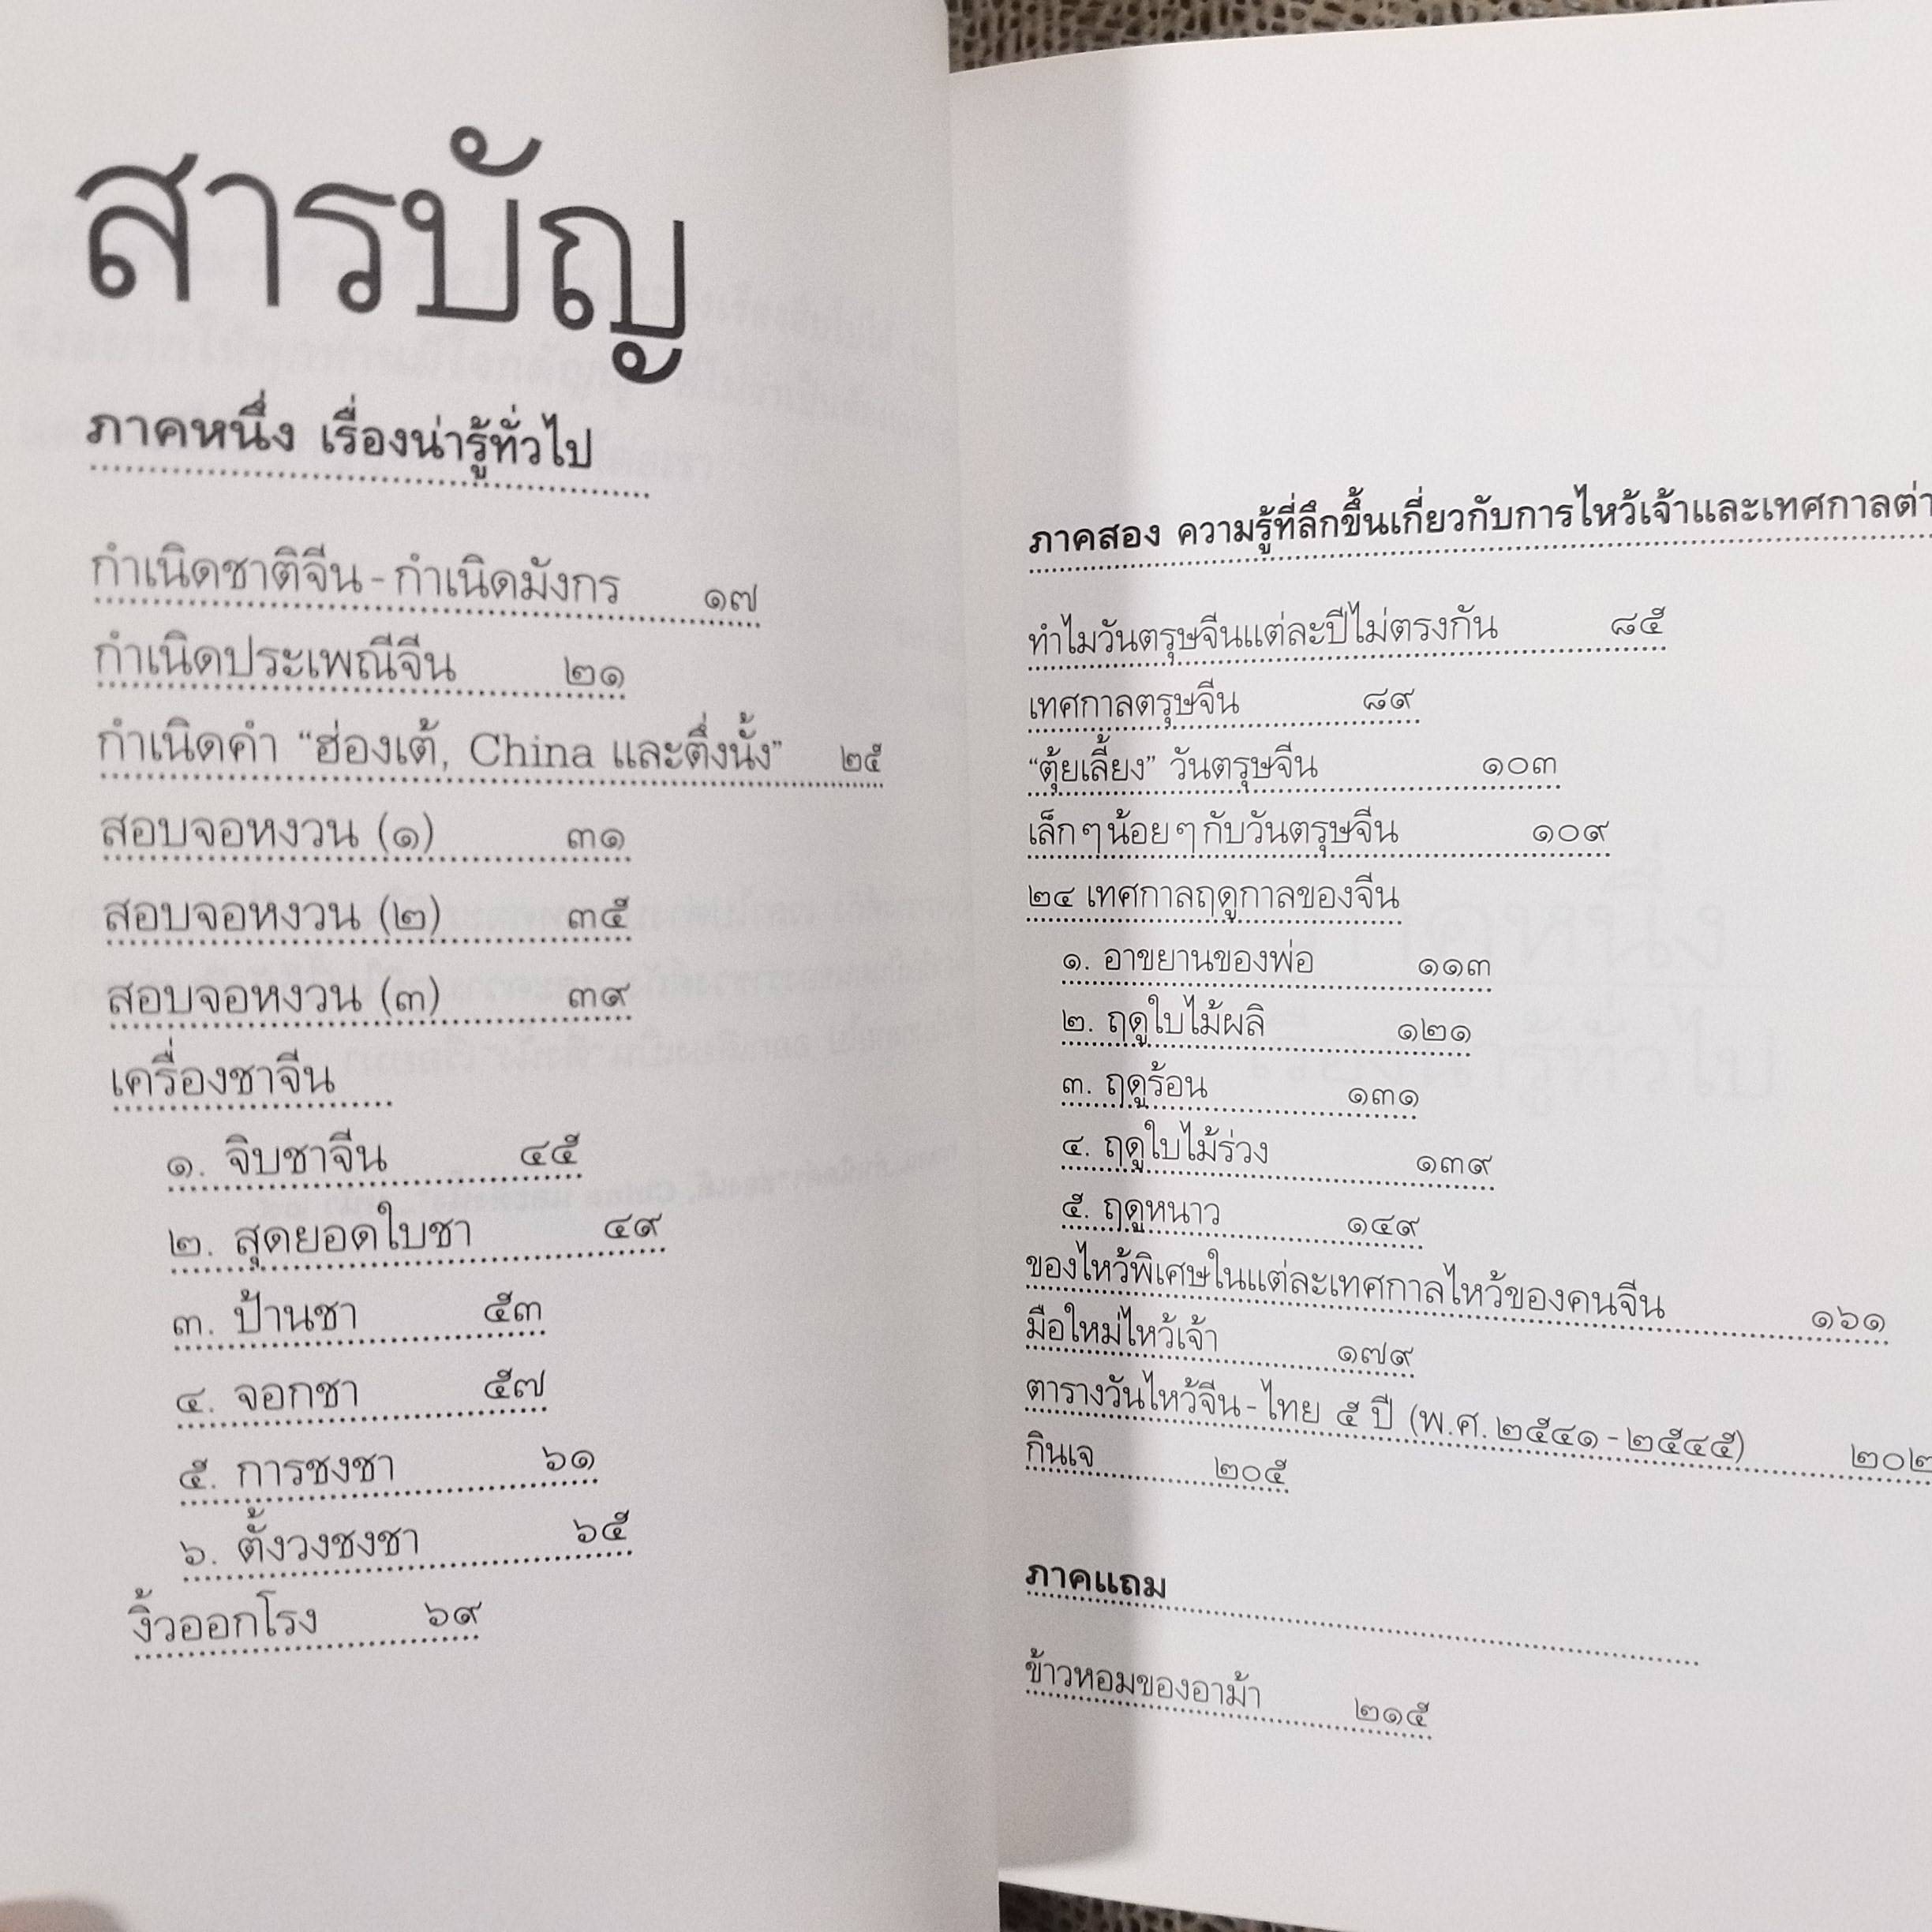 สารบัญ
ภาคหนึ่ง เรื่องน่ารู้ทั่วไป
กำเนิดชาติจีน - กำเนิดมังกร ๑๗
กำเนิดประเพณีจีน ๒๑
กำเนิดคำ “ฮ่องเต้, China และตึ่งนั้ง” ๒๕
สอบจอหงวน (๑) ๓๑
สอบจอหงวน (๒) ๓๕
สอบจอหงวน (๓) ๓๙
เครื่องชาจีน
๑. จิบชาจีน ๔๕
๒. สุดยอดใบชา ๔๙
๓. ป้านชา ๕๓
๔. จอกชา ๕๗
๕. การชงชา ๖๑
๖. ตั้งวงชงชา ๖๕
งิ้วออกโรง ๖๙
ภาคสอง ความรู้ที่ลึกขึ้นเกี่ยวกับการไหว้เจ้าและเทศกาล
ทำไมวันตรุษจีนแต่ละปีไม่ตรงกัน ๘๕
เทศกาลตรุษจีน ๘๙
“ตุ้ยเลี้ยง” วันตรุษจีน ๑๐๓
เล็กๆ น้อยๆ กับวันตรุษจีน ๑๐๙
๒๔ เทศกาลฤดูกาลของจีน
๑. อาขยานของพ่อ ๑๑๓
๒. ฤดูใบไม้ผลิ ๑๒๑
๓. ฤดูร้อน ๑๓๑
๔. ฤดูใบไม้ร่วง ๑๓๙
๕. ฤดูหนาว ๑๔๙
ของไหว้พิเศษในแต่ละเทศกาลไหว้ของคนจีน ๑๖๑
มือใหม่ไหว้เจ้า ๑๗๙
ตารางวันไหว้จีน - ไทย ๕ ปี (พ.ศ. ๒๕๔๑ - ๒๕๔๕) ๒๐๒
กินเจ ๒๐๕
ภาคแถม
ข้าวหอมของอาม้า ๒๑๕